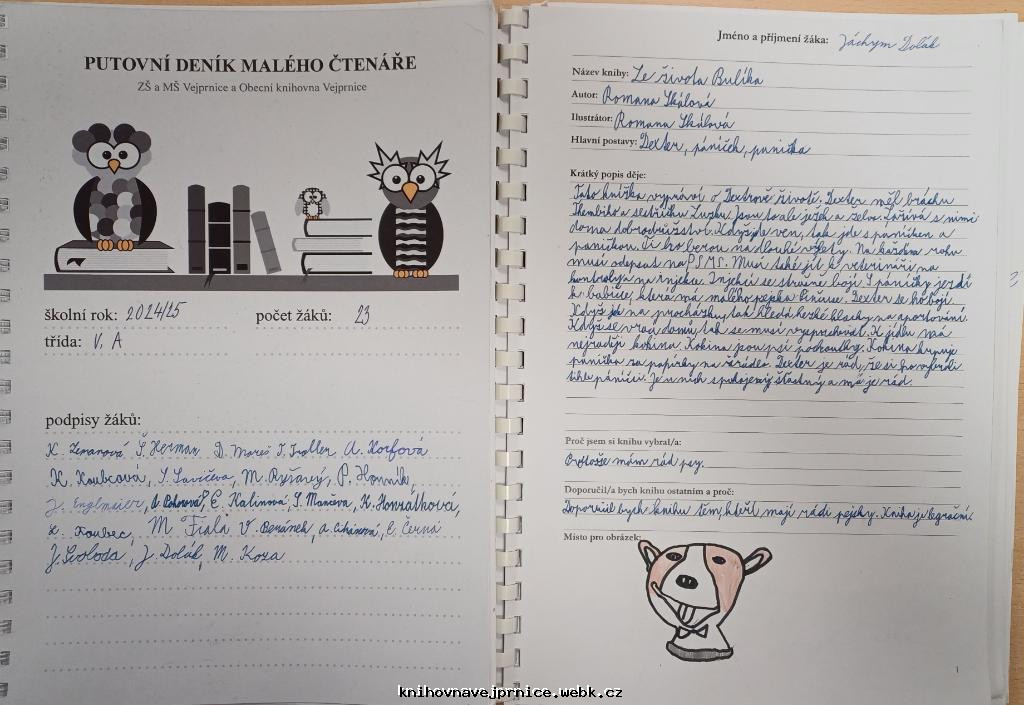 PUTOVNÍ DENÍK MALÉHO ČTENÁŘE
ZŠ a MŠ Vejprnice a Obecní knihovna Vejprnice
školní rok: 2024/25 počet žáků: 23
třída: V. A
podpisy žáků:
K. Zemanová, Š. Herman, D. Mareš, T. Troller, A. Korfová
K. Koubcová, S. Savičeva, M. Ryšavý, P. Horník,
J. Englmaier, E. Kalinová, S. K.
L. Koubec, M. Fiala V. Beránek, E. Černá
J. Svoboda, J. Dolák, M. Koza
Jméno a příjmení žáka: Jáchym Dolák
Název knihy: Ze života Bulíka
Autor: Romana Skálová
Ilustrátor: Romana Skálová
Hlavní postavy: Dexter, páníček, panička
Krátký popis děje:
Tato knížka vypráví o Dextrově životě. Dexter měl bráchu
a sestřičku Jsou to ale ježek a želva. Zažívá s nimi
doma dobrodružství. Když jde ven, tak jde s páníčkem a
paničkou. Či ho berou na dlouhé výlety. Na každém rohu
musí odepsat na PSMS. Musí také jít k veterináři na
kontroly a na injekce. Injekcí se strašně bojí. S páníčky jezdí
k babičce, která má malého pejska Dexter se ho bojí.
Když jde na procházku, tak hledá hezké klacky na aportování.
Když se vrací domů, tak se musí vysprchovat. K jídlu má
nejraději kokina. Kokina jsou psí pochoutky. Kokina kupuje
panička za papírky na Dexter je rád, že si ho vybrali
tihle páníčci. Je u nich spokojený šťastný a má je rád.
Proč jsem si knihu vybral/a:
Protože mám rád psy.
Doporučil/a bych knihu ostatním a proč:
Doporučil bych knihu těm, kteří mají rádi pejsky. Kniha je legrační.
Místo pro obrázek:
1
knihovnavejprnice.webk.cz